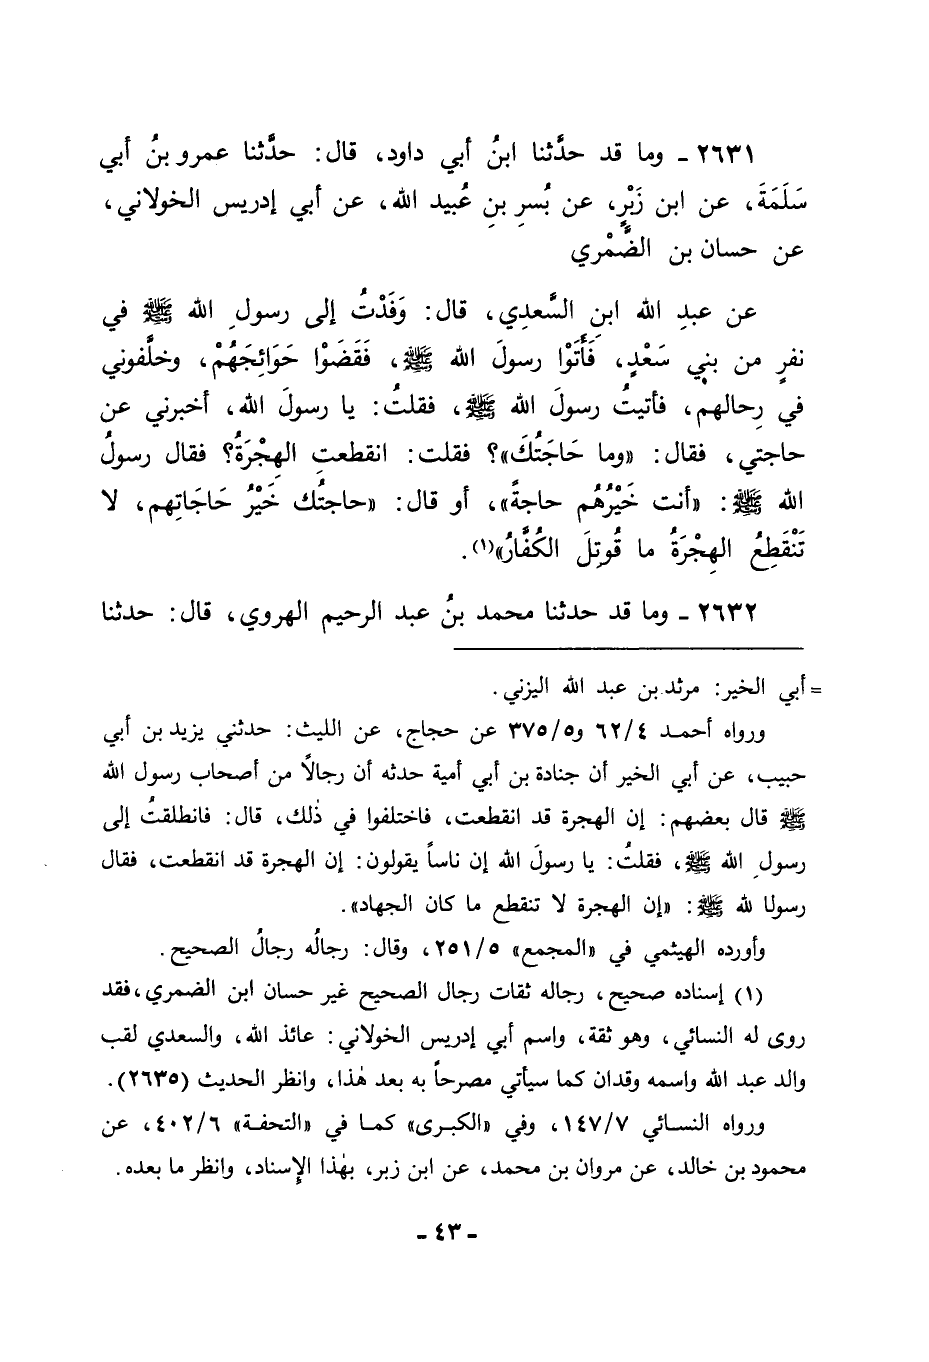 ٢٦٣١ ـ وما قد حدَّثنا ابنُ أبي داود، قال: حدَّثنا عمرو بنُ أبي
سَلَمَةَ، عن ابن زَبْرٍ، عن بُسرِ بنِ عُبيد الله، عن أبي إدريس الخولاني،
عن حسان بن الضَّمْري
عن عبدِ الله ابنِ السَّعدِي، قال: وَفَدْتُ إلى رسولِ الله ﷺ في
نفرٍ من بني سَعْدٍ، فَأَتَوْا رسولَ الله ﷺ، فَقَضَوْا حَوَائِجَهُمْ، وخلَّفوني
في رِحالهم، فأتيتُ رسولَ الله ﷺ، فقلتُ: يا رسولَ الله، أخبرني عن
حاجتي، فقال: «وما حَاجَتُكَ»؟ فقلت: انقطعتِ الهِجْرَةُ؟ فقال رسولُ
الله ﷺ: «أنت خَيْرُهُم حاجةً»، أو قال: «حاجتُك خَيْرُ حَاجَاتِهم، لا
تَنْقَطِعُ الهِجْرَةُ ما قُوتِلَ الكُفَّارُ»(١).
٢٦٣٢ ـ وما قد حدثنا محمد بنُ عبد الرحيم الهروي، قال: حدثنا
= أبي الخير: مرثد بن عبد الله اليزني.
ورواه أحمد ٦٢/٤ و٣٧٥/٥ عن حجاج، عن الليث: حدثني يزيد بن أبي
حبيب، عن أبي الخير أن جنادة بن أبي أمية حدثه أن رجالاً من أصحاب رسول الله
ﷺ قال بعضهم: إن الهجرة قد انقطعت، فاختلفوا في ذٰلك، قال: فانطلقتُ إلى
رسولِ الله ﷺ، فقلتُ: يا رسولَ الله إن ناساً يقولون: إن الهجرة قد انقطعت، فقال
رسولا لله ﷺ: «إن الهجرة لا تنقطع ما كان الجهاد».
وأورده الهيثمي في «المجمع» ٢٥١/٥، وقال: رجالُه رجالُ الصحيح.
(١) إسناده صحيح، رجاله ثقات رجال الصحيح غير حسان ابن الضمري، فقد
روى له النسائي، وهو ثقة، واسم أبي إدريس الخولاني: عائذ الله، والسعدي لقب
والد عبد الله واسمه وقدان كما سيأتي مصرحاً به بعد هٰذا، وانظر الحديث (٢٦٣٥).
ورواه النسائي ١٤٧/٧، وفي «الكبرى» كما في «التحفة» ٤٠٢/٦، عن
محمود بن خالد، عن مروان بن محمد، عن ابن زبر، بهٰذا الإِسناد، وانظر ما بعده.
ـ ٤٣ ـ